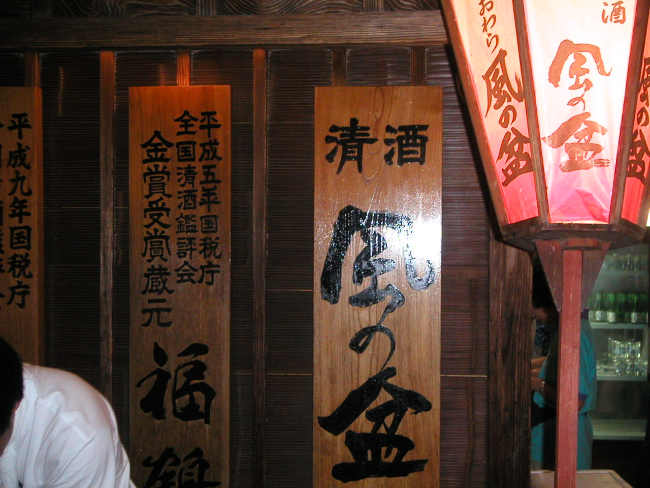 平成九年国税庁
平成五年国税庁
全国清酒鑑評会
金賞受賞蔵元
福鶴
清酒
風の盆
おわら
風の盆
酒
風の盆
風の盆